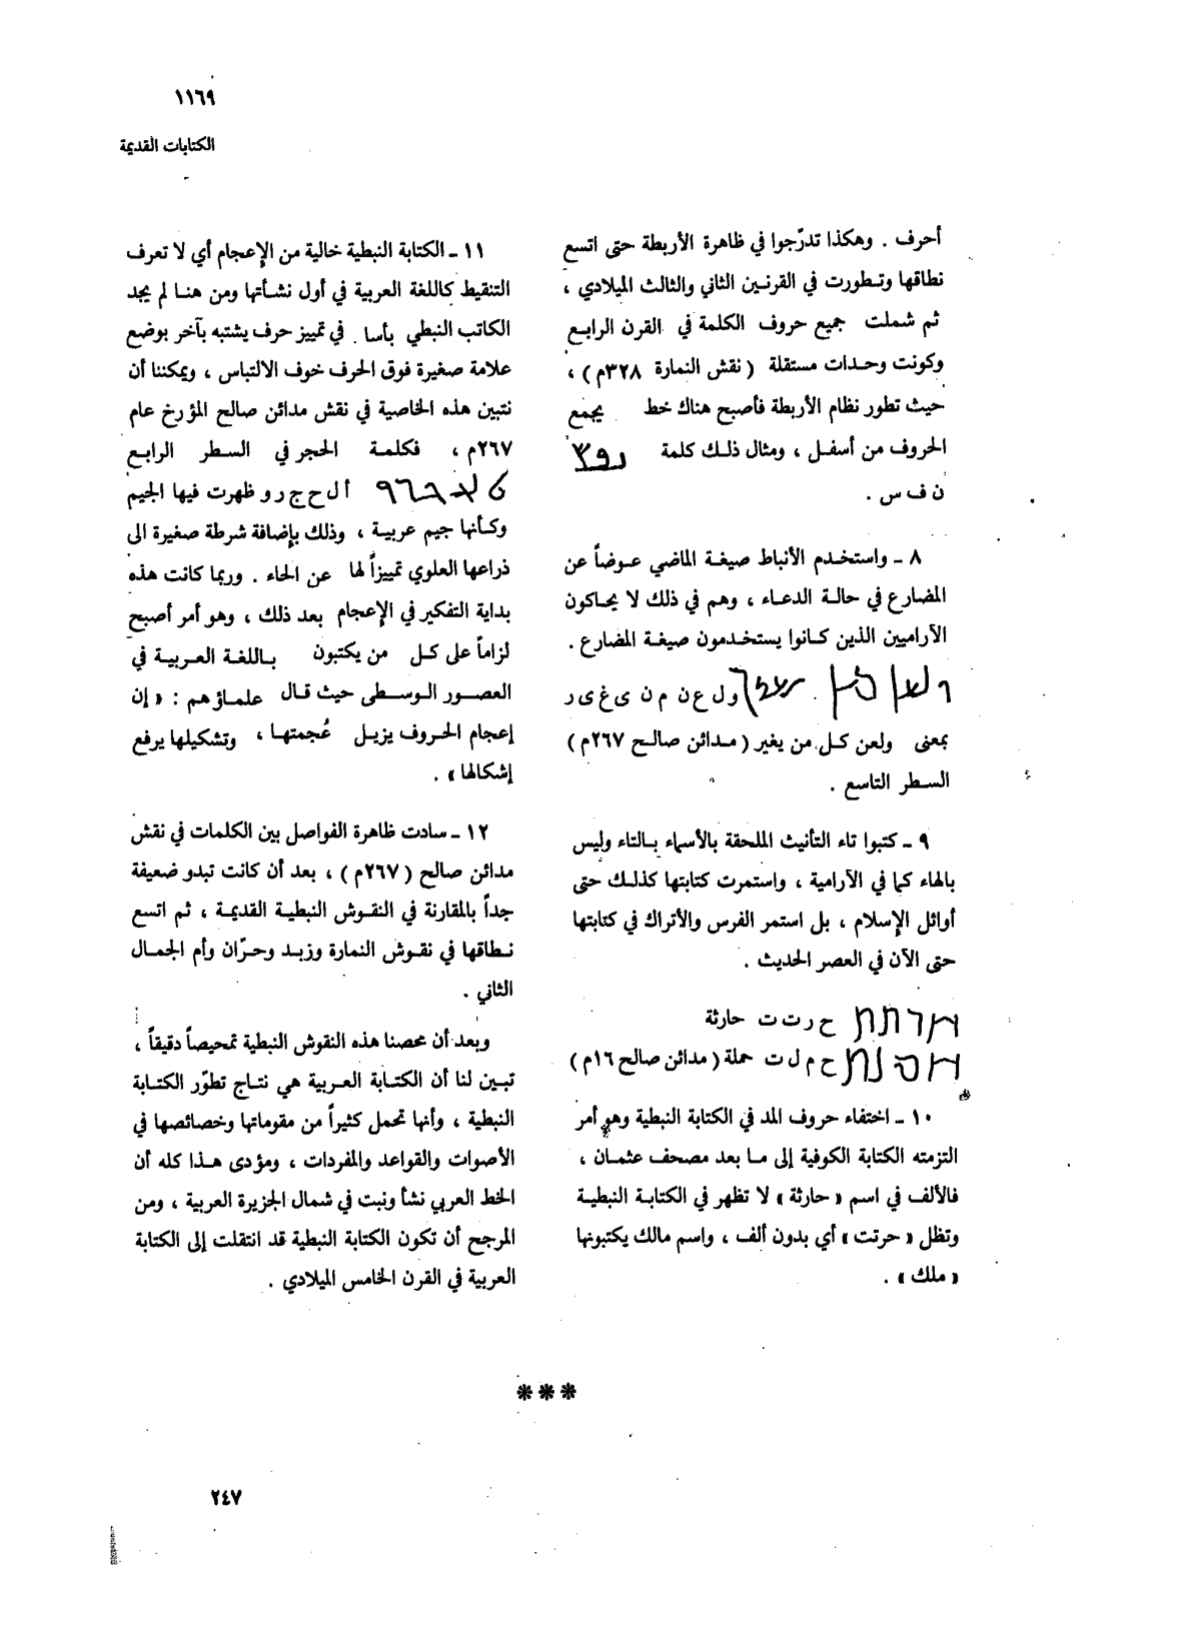 ١١٦٩
الكتابات القديمة
أحرف . وهكذا تدرّجوا في ظاهرة الأربطة حتى اتسع
نطاقها وتطورت في القرنين الثاني والثالث الميلادي ،
ثم شملت جميع حروف الكلمة في القرن الرابع
وكونت وحدات مستقلة ( نقش النمارة ٣٢٨م ) ،
حيث تطور نظام الأربطة فأصبح هناك خط يجمع
الحروف من أسفل ، ومثال ذلك كلمة
ن ف س .
٨ ـ واستخدم الأنباط صيغة الماضي عوضاً عن
المضارع في حالة الدعاء ، وهم في ذلك لا يحاكون
الآراميين الذين كانوا يستخدمون صيغة المضارع .
ول ع ن م ن ى غ ى ر
بمعنى ولعن كل من يغير ( مدائن صالح ٢٦٧م )
السطر التاسع .
٩ ـ كتبوا تاء التأنيث الملحقة بالأسماء بالتاء وليس
بالهاء كما في الآرامية ، واستمرت كتابتها كذلك حتى
أوائل الإسلام ، بل استمر الفرس والأتراك في كتابتها
حتى الآن في العصر الحديث .
ح ر ت ت حارثة
ح م ل ت حملة ( مدائن صالح ١٦م )
١٠ ـ اختفاء حروف المد في الكتابة النبطية وهو أمر
التزمته الكتابة الكوفية إلى ما بعد مصحف عثمان ،
فالألف في اسم « حارثة » لا تظهر في الكتابة النبطية
وتظل « حرتت » أي بدون ألف ، واسم مالك يكتبونها
« ملك » .
١١ ـ الكتابة النبطية خالية من الإعجام أي لا تعرف
التنقيط كاللغة العربية في أول نشأتها ومن هنا لم يجد
الكاتب النبطي بأسا . في تمييز حرف يشتبه بآخر بوضع
علامة صغيرة فوق الحرف خوف الالتباس ، ويمكننا أن
نتبين هذه الخاصية في نقش مدائن صالح المؤرخ عام
٢٦٧م ، فكلمة الحجر في السطر الرابع
أ ل ح ج ر و ظهرت فيها الجيم
وكأنها جيم عربية ، وذلك بإضافة شرطة صغيرة الى
ذراعها العلوي تمييزاً لها عن الحاء . وربما كانت هذه
بداية التفكير في الإعجام بعد ذلك ، وهو أمر أصبح
لزاماً على كل من يكتبون باللغة العربية في
العصور الوسطى حيث قال علماؤهم : « إن
إعجام الحروف يزيل عُجمتها ، وتشكيلها يرفع
إشكالها » .
١٢ ـ سادت ظاهرة الفواصل بين الكلمات في نقش
مدائن صالح ( ٢٦٧م ) ، بعد أن كانت تبدو ضعيفة
جداً بالمقارنة في النقوش النبطية القديمة ، ثم اتسع
نطاقها في نقوش النمارة وزبد وحرّان وأم الجمال
الثاني .
وبعد أن محصنا هذه النقوش النبطية تمحيصاً دقيقاً ،
تبين لنا أن الكتابة العربية هي نتاج تطوّر الكتابة
النبطية ، وأنها تحمل كثيراً من مقوماتها وخصائصها في
الأصوات والقواعد والمفردات ، ومؤدى هذا كله أن
الخط العربي نشأ ونبت في شمال الجزيرة العربية ، ومن
المرجح أن تكون الكتابة النبطية قد انتقلت إلى الكتابة
العربية في القرن الخامس الميلادي .
***
٢٤٧